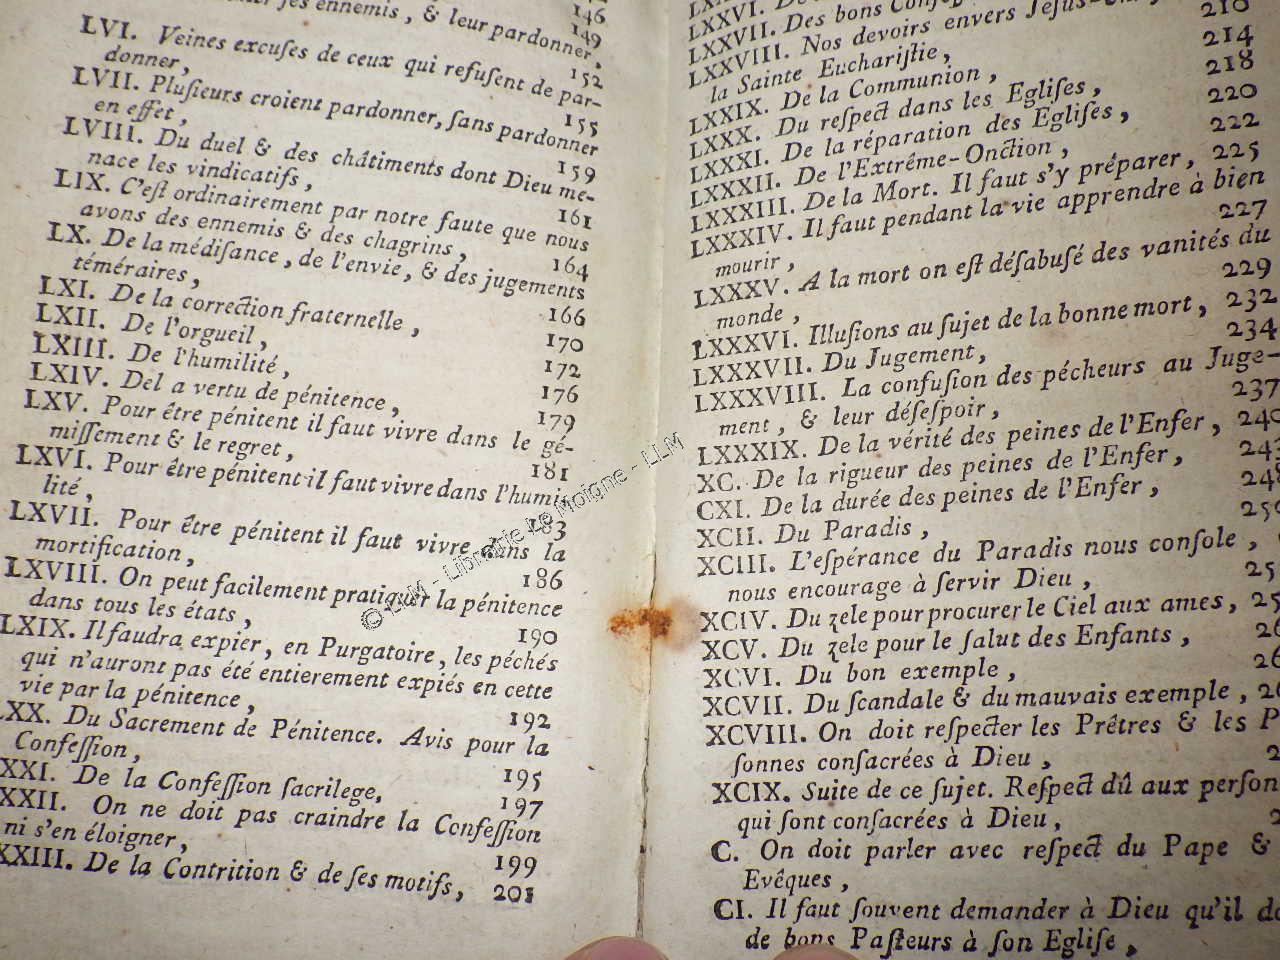 ses ennemis, & leur pardonner,
146
149
LVI. Veines excuſes de ceux qui refuſent de par-
donner, 152
LVII. Pluſieurs croient pardonner, ſans pardonner
en effet, 155
LVIII. Du duel & des châtiments dont Dieu me-
nace les vindicatifs, 159
LIX. C'eſt ordinairement par notre faute que nous
avons des ennemis & des chagrins, 161
LX. De la médiſance, de l'envie, & des jugements
téméraires, 164
LXI. De la correction fraternelle, 166
LXII. De l'orgueil, 170
LXIII. De l'humilité, 172
LXIV. Del a vertu de pénitence, 176
LXV. Pour être pénitent il faut vivre dans le gé-
miſſement & le regret, 179
LXVI. Pour être pénitent il faut vivre dans l'humi-
lité, 181
LXVII. Pour être pénitent il faut vivre dans la
mortification, 183
LXVIII. On peut facilement pratiquer la pénitence
dans tous les états, 186
LXIX. Il faudra expier, en Purgatoire, les péchés
qui n'auront pas été entierement expiés en cette
vie par la pénitence, 190
LXX. Du Sacrement de Pénitence. Avis pour la
Confeſſion, 192
XXI. De la Confeſſion ſacrilege, 195
XXII. On ne doit pas craindre la Confeſſion
ni s'en éloigner, 197
XXIII. De la Contrition & de ſes motifs, 199
201
LXXVI.
LXXVII. Des bons
LXXVIII. Nos devoirs envers
la Sainte Euchariſtie, 210
LXXIX. De la Communion, 214
LXXX. Du reſpect dans les Egliſes, 218
LXXXI. De la réparation des Egliſes, 220
LXXXII. De l'Extrême-Onction, 222
LXXXIII. De la Mort. Il faut s'y préparer, 225
LXXXIV. Il faut pendant la vie apprendre à bien
mourir, 227
LXXXV. A la mort on eſt déſabuſé des vanités du
monde, 229
LXXXVI. Illuſions au ſujet de la bonne mort, 232
LXXXVII. Du Jugement, 234
LXXXVIII. La confuſion des pécheurs au Juge-
ment, & leur déſeſpoir, 237
LXXXIX. De la vérité des peines de l'Enfer, 240
XC. De la rigueur des peines de l'Enfer,
CXI. De la durée des peines de l'Enfer,
XCII. Du Paradis,
XCIII. L'eſpérance du Paradis nous conſole,
nous encourage à ſervir Dieu,
XCIV. Du zele pour procurer le Ciel aux ames,
XCV. Du zele pour le ſalut des Enfants,
XCVI. Du bon exemple,
XCVII. Du ſcandale & du mauvais exemple,
XCVIII. On doit reſpecter les Prêtres & les P
ſonnes conſacrées à Dieu,
XCIX. Suite de ce ſujet. Reſpect dû aux perſon
qui ſont conſacrées à Dieu,
C. On doit parler avec reſpect du Pape &
Evêques,
CI. Il faut ſouvent demander à Dieu qu'il do
de bons Paſteurs à ſon Egliſe,
© LLM - Librairie Le Moigne - LLM